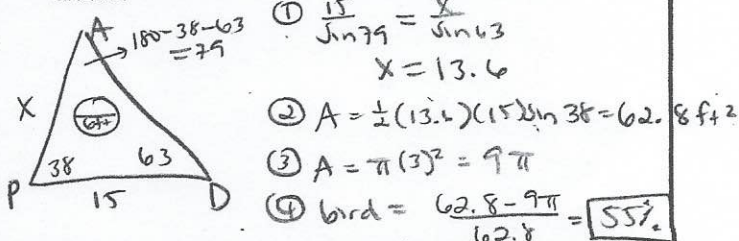 A
180-38-63
=79
X
6ft
38
63
P
15
D
① 15/sin79 = x/sin63
X = 13.6
② A = ½(13.6)(15)sin 38 = 62.8 ft²
③ A = π(3)² = 9π
④ bird = 62.8-9π/62.8 = 55%